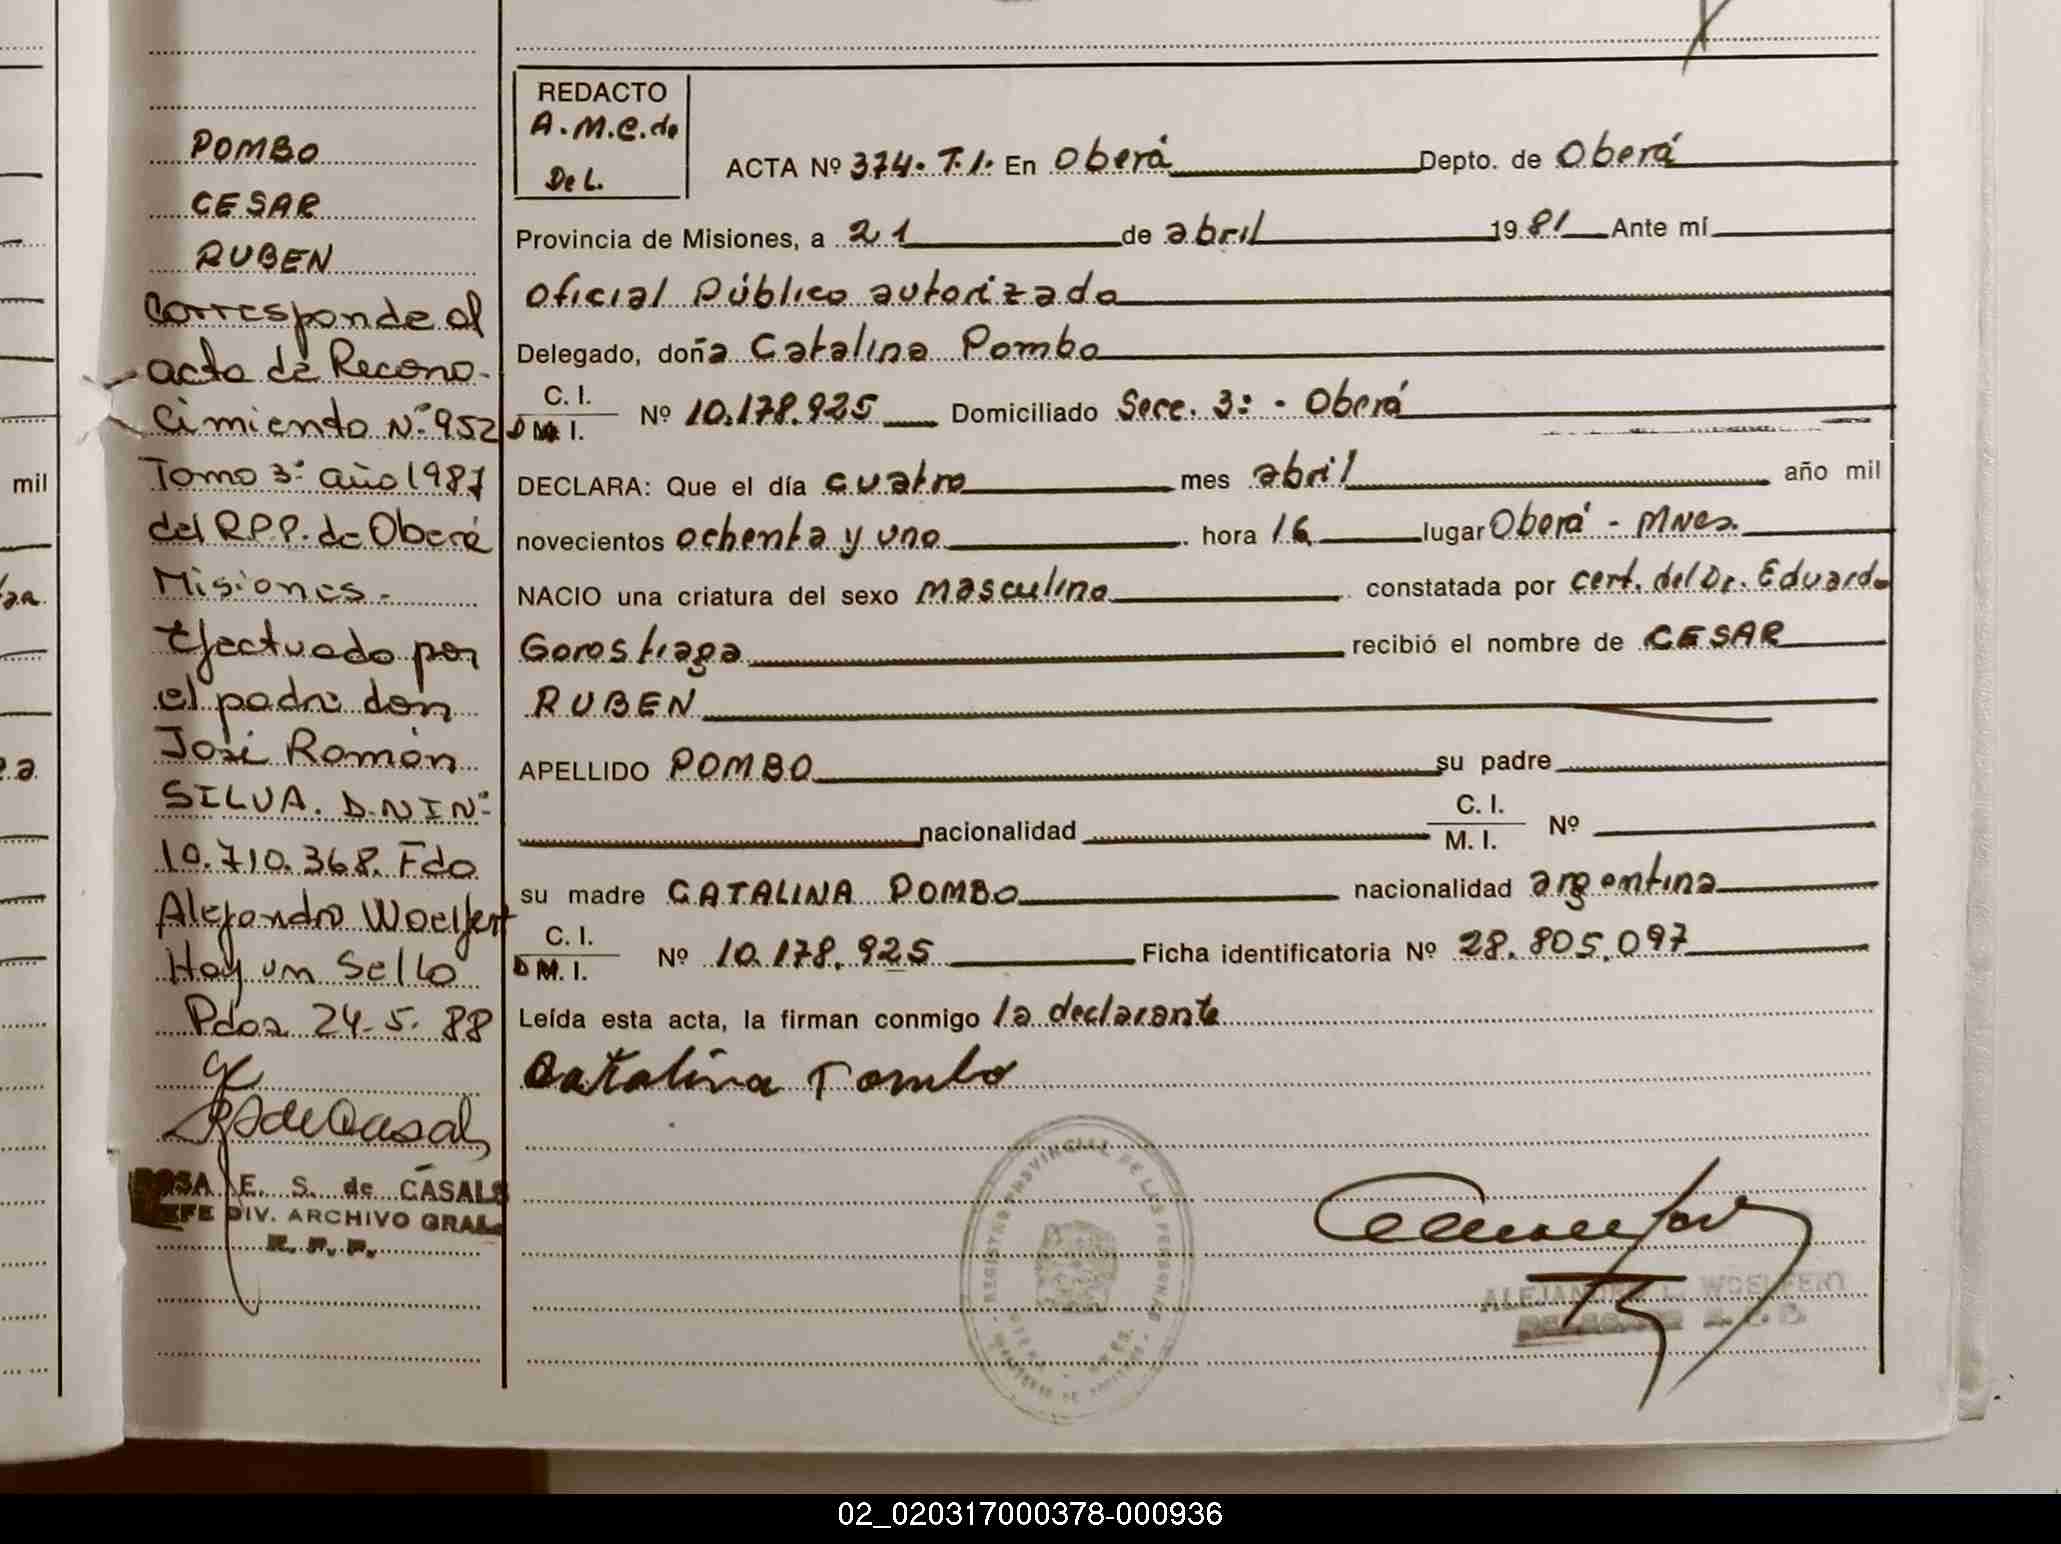 POMBO
CESAR
RUBEN
Corresponde al
acta de Recono-
cimiento Nº 952
Tomo 3º año 1987
del R.P.P. de Oberá
Misiones.-
Efectuado por
el padre don
José Ramón
SILVA. D.N.I Nº
10.710.368. Fdo
Alejandro Woelfert
Hay un Sello
Pdas 24-5-88
ROSA E. S. de CASALS
JEFE DIV. ARCHIVO GRAL.
R. P. P.
REDACTO
A.M.C. de
De L.
ACTA Nº 374. T.I. En Oberá Depto. de Oberá
Provincia de Misiones, a 21 de abril 1981 Ante mí
Oficial Público autorizado
Delegado, doña Catalina Pombo
C. I.
D M. I. Nº 10.178.925 Domiciliado Secc. 3º - Oberá
DECLARA: Que el día cuatro mes abril año mil
novecientos ochenta y uno hora 16 lugar Oberá - Mnes.
NACIO una criatura del sexo masculino constatada por cert. del Dr. Eduardo
Gorostiaga recibió el nombre de CESAR
RUBEN
APELLIDO POMBO su padre
nacionalidad C. I.
M. I. Nº
su madre CATALINA POMBO nacionalidad argentina
C. I.
D M. I. Nº 10.178.925 Ficha identificatoria Nº 28.805.097
Leída esta acta, la firman conmigo la declarante
Catalina Pombo
REGISTRO PROVINCIAL DE LAS PERSONAS
ALEJANDRO L. WOELFERT
mil
02_020317000378-000936